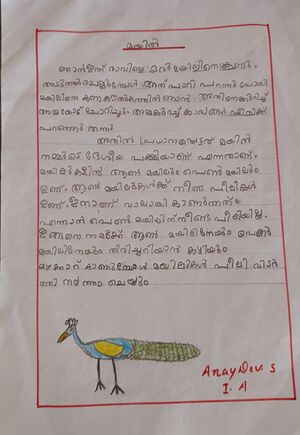 മയിൽ
ഞാൻ ഇന്ന് രാവിലെ ഒരു മയിലിനെ കണ്ടു.
അടുത്ത് ചെല്ലുമ്പോൾ അത് പാറി പറന്നു പോയി
മയിലിനെ കണ്ട കൗതുകത്തിൽ ഞാൻ അതിനെക്കുറിച്ച്
അമ്മയോട് ചോദിച്ചു. അമ്മ കുറച്ച് കാര്യങ്ങൾ എനിക്ക്
പറഞ്ഞു തന്നു
അതിൽ പ്രധാനപ്പെട്ടത് മയിൽ
നമ്മുടെ ദേശീയ പക്ഷിയാണ് എന്നതാണ്.
മയിലുകളിൽ ആൺ മയിലും പെൺ മയിലും
ഉണ്ട്. ആൺ മയിലുകൾക്ക് നീണ്ട പീലികൾ
ഉണ്ട്. ഇതാണ് വാലായി കാണുന്നത്.
എന്നാൽ പെൺ മയിലിന് നീണ്ട പീലിയില്ല.
ഇങ്ങനെ നമുക്ക് ആൺ മയിലിനേയും പെൺ
മയിലിനേയും തിരിച്ചറിയാൻ കഴിയും
മഴക്കാറ് കാണുമ്പോൾ മയിലുകൾ പീലി വിടർ
ത്തി നൃത്തം ചെയ്യും
Anay Dev. S
I. A